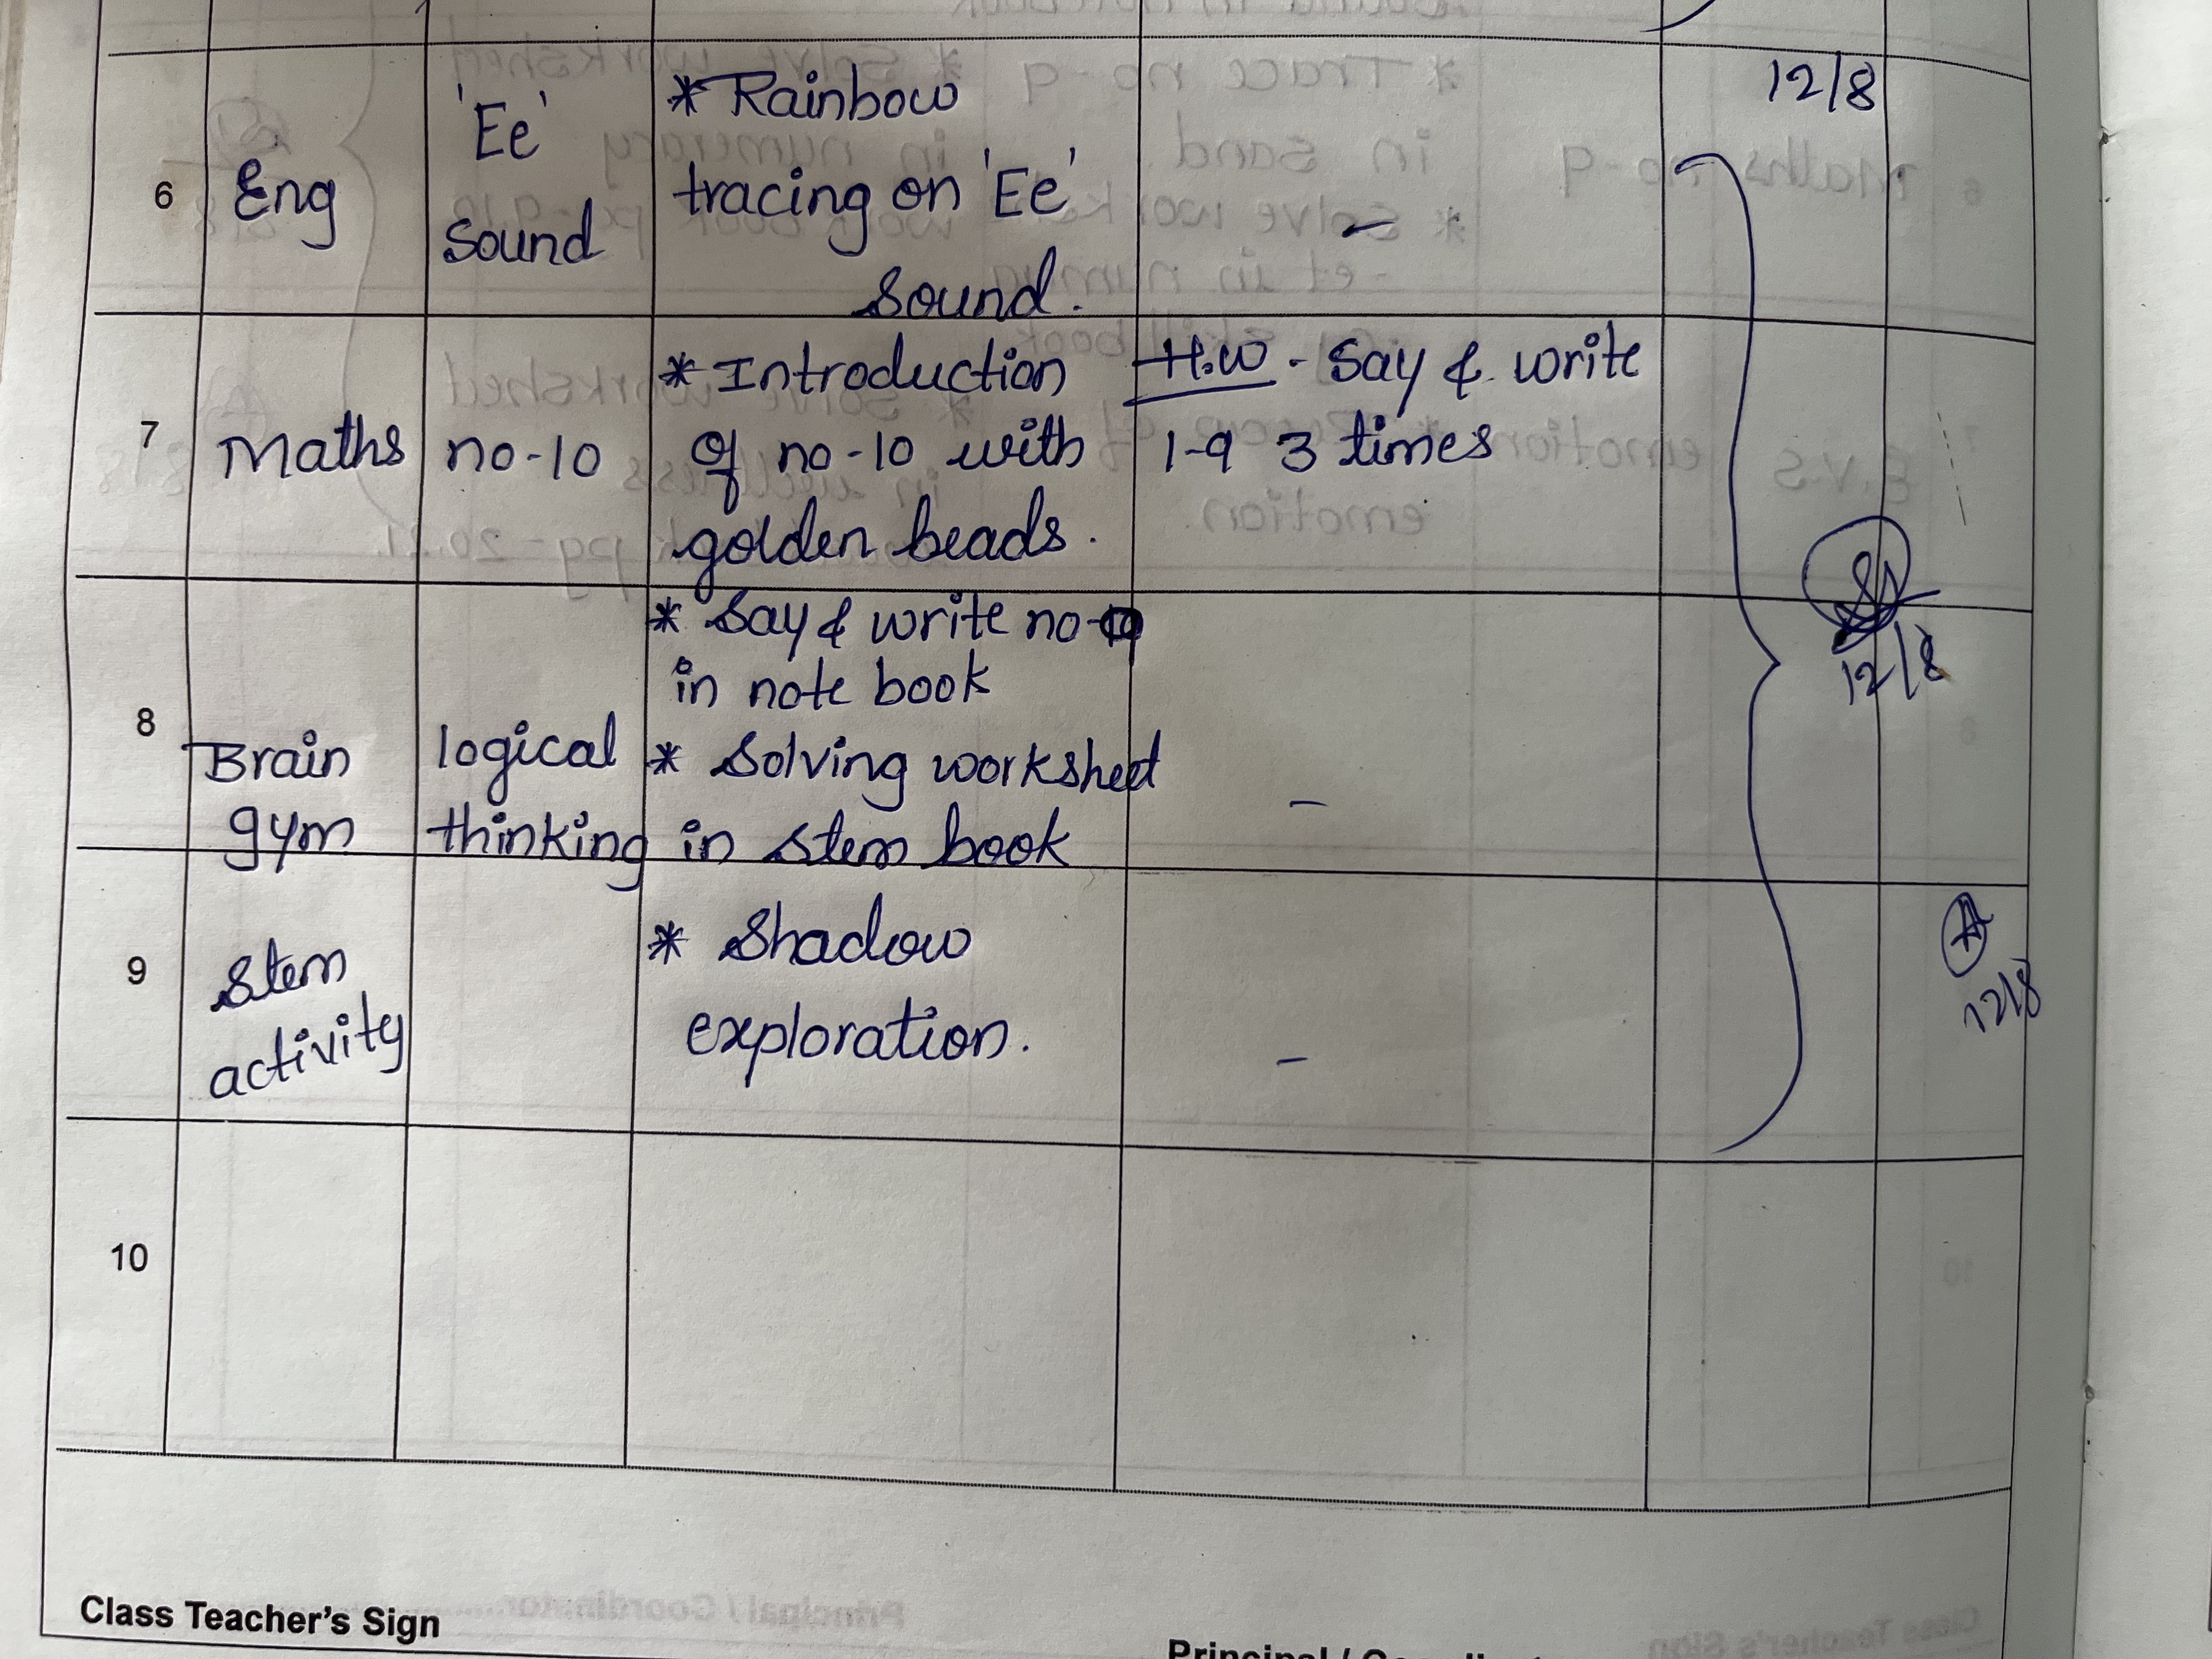 12/8
6
Eng
'Ee'
Sound
* Rainbow
tracing on 'Ee'
sound.
-
7
Maths
no-10
* Introduction
of no-10 with
golden beads.
H.W - Say & write
1-9 3 times
* Say & write no-
in note book
8
Brain
gym
logical
thinking
* Solving worksheet
in stem book
-
12/8
9
Stem
activity
* Shadow
exploration.
-
12/8
10
Class Teacher's Sign
Principal /